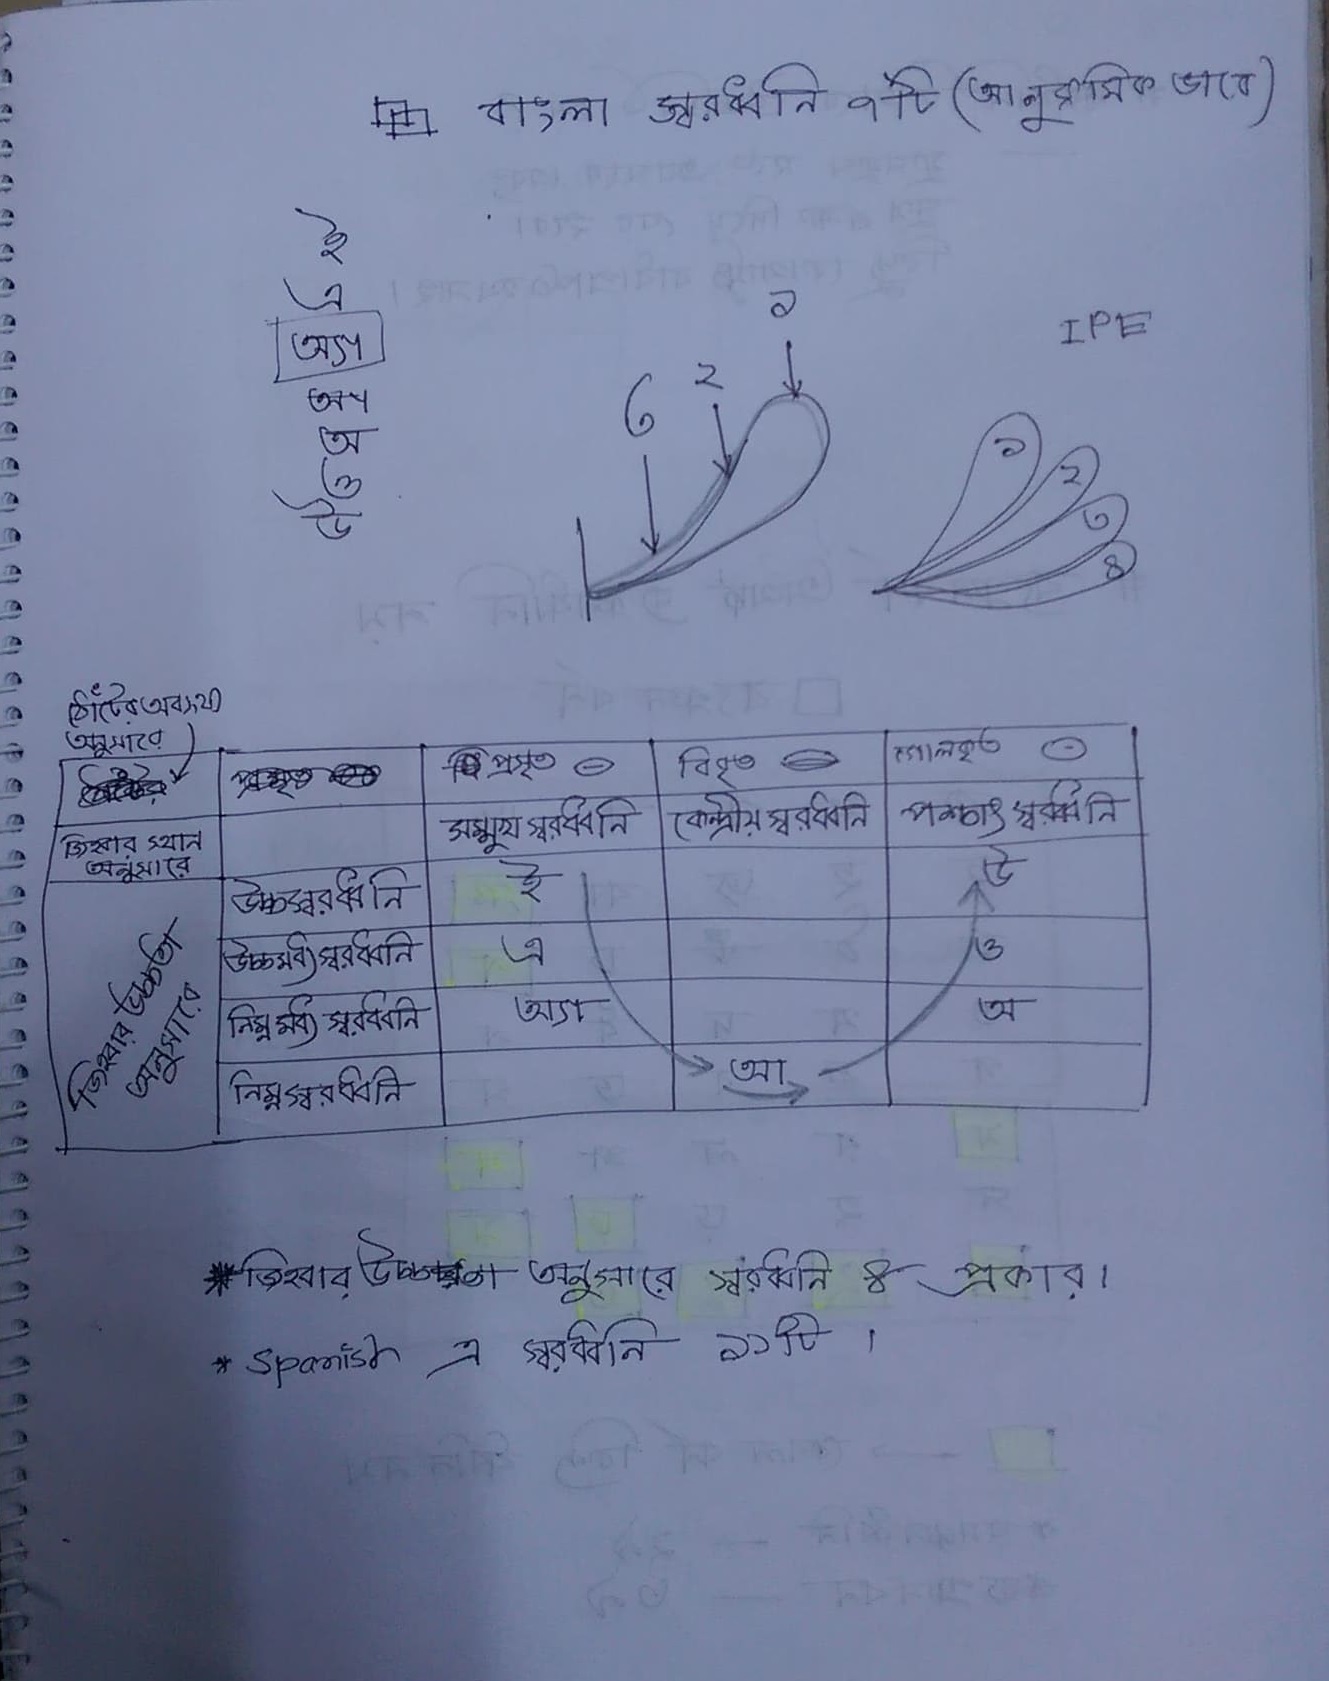 বাংলা স্বরধ্বনি ৭টি (আনুক্রমিক ভাবে)
ই
এ
অ্যা
আ
অ
ও
উ
১
২
৩
IPE
১
২
৩
৪
ঠোঁটের অবস্থা
অনুসারে
প্রসৃত
বিবৃত
গোলকৃত
জিহ্বার স্থান
অনুসারে
সম্মুখ স্বরধ্বনি
কেন্দ্রীয় স্বরধ্বনি
পশ্চাৎ স্বরধ্বনি
জিহ্বার উচ্চতা
অনুসারে
উচ্চস্বরধ্বনি
ই
উ
উচ্চমধ্য স্বরধ্বনি
এ
ও
নিম্নমধ্য স্বরধ্বনি
অ্যা
অ
নিম্নস্বরধ্বনি
আ
* জিহ্বার উচ্চতা অনুসারে স্বরধ্বনি ৪ প্রকার।
* Spanish এ স্বরধ্বনি ১১টি।